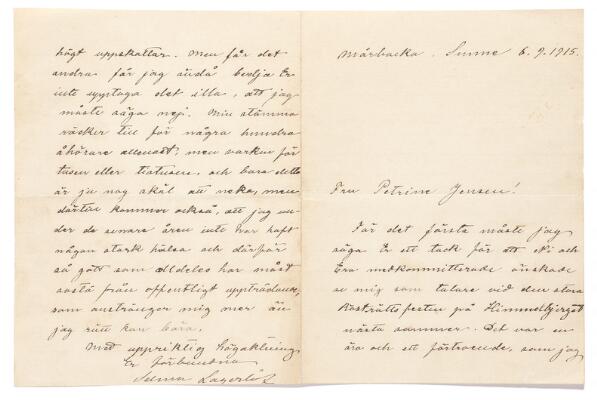 Mårbacka. Sunne 6.9.1915.
Fru Petrine Jensen!
För det första måste jag
säga Er ett tack för att Ni och
Era medkommitterade önskade
se mig som talare vid den stora
Rösträttsfesten på Himmelbjerget
nästa sommar. Det var en
ära och ett förtroende, som jag
högt uppskattar. Men för det
andra får jag ändå bedja Er
inte upptaga det illa, att jag
måste säga nej. Min stämma
räcker till för några hundra
åhörare allenast, men varken för
tusen eller tiotusen, och bara detta
är ju nog skäl att neka, men
därtill kommer också, att jag un-
der de senare åren inte har haft
någon stark hälsa och därför
så gott som alldeles har måst
avstå från offentligt uppträdande,
som anstränger mig mer än
jag rätt kan bära.
Med uppriktig högaktning
Er förbundna
Selma Lagerlöf